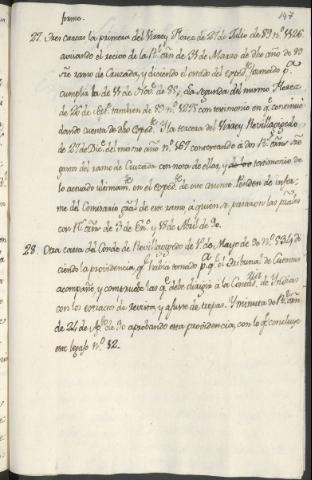 197
firme.
27. Tres cartas la primera del Virrey Florez de 27 de Julio de 89 nº 1126.
avisando el recivo de la Rl. orñ de 31 de Marzo de dho año de 89
sre ramo de Cruzada, y diciendo el estado del exped.te formado pª
cumplir la de 11 de Nov.e de 88, La segunda del mismo Florez
de 26 de Ag.to tambien de 89 nº 1275 con testimonio en qe continua
dando cuenta de dho exped.te Y la tercera del Virrey Revillagigedo
de 27 de Dic.e del mismo año nº 167 contextando a dos Rs. orñs sre
gracia del ramo de Cruzada con nota de ellas, y de los testimonio de
lo actuado ultimam.te en el exped.te de ese asunto. Penden de infor-
me del Comisario gral de este ramo à quien se pasaron las
con Rl. orñs de 3 de En.o y 18 de Abril de 90.
28. Otra carta del Conde de Revillagigedo de 1º de Mayo de 90 nº 534 di-
ciendo la providencia qe había tomado pª qe el Tribunal de Cuentas
acompañe, y comprueve las qe debe dirigir à la Contad.ria de Yndias
con los extractos de revista, y ajustes de tropas. Y minuta de Rl. orñ
de 24 de Ag.to de 90 aprobando esta providencia, con lo qe concluye
este legajo nº 12.